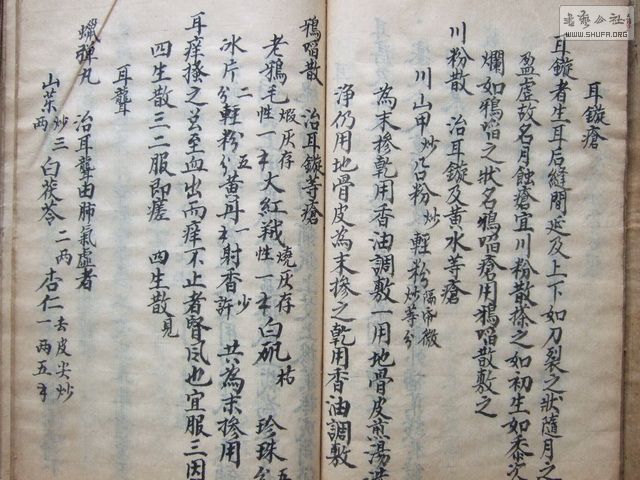 耳鏇瘡
耳鏇者生耳后縫間延及上下如刀裂之狀隨月之
盈虛故名月蝕瘡宜川粉散搽之如初生如黍次
爛如鴉啗之狀名鴉啗瘡用鴉啗散敷之
川粉散 治耳鏇及黃水等瘡
川山甲炒 鉛粉炒 輕粉隔帋微炒等分
為末摻乾用香油調敷一用地骨皮煎湯洗
淨仍用地骨皮為末摻之乾用香油調敷
鴉啗散 治耳鏇等瘡
老鴉毛煅灰存性一 大紅羢燒灰存性一 白矾枯 珍珠五分
冰片二分 輕粉五 黃丹一 射香少許 共為末摻用
耳痒搔之甚至血出而痒不止者腎風也宜服三因
四生散三二服即瘥 四生散見
耳聾
蠟彈丸 治耳聾由肺氣虛者
山茱炒三两 白茯苓二两 杏仁去皮尖炒一两五
書藝公社
WWW.SHUFA.ORG